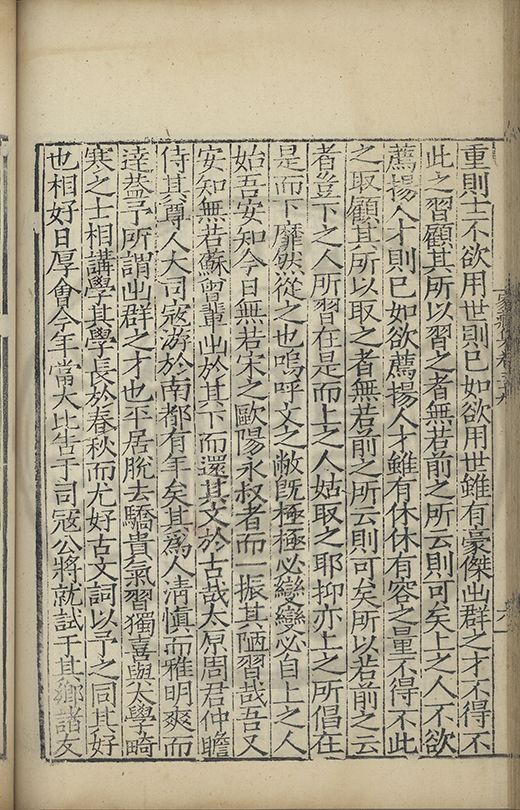 重則士不欲用世則已如欲用世雖有豪傑出群之才不得不
此之習顧其所以習之者無若前之所云則可矣上之人不欲
薦揚人才則已如欲薦揚人才雖有休休有容之量不得不此
之取顧其所以取之者無若前之所云則可矣所以若前之云
者豈下之人所習在是而上之人姑取之耶抑亦上之所倡在
是而下靡然從之也嗚呼文之敝旣極極必變變必自上之人
始吾安知今日無若宋之歐陽永叔者而一振其陋習哉吾又
安知無若蘇曾輩出於其下而還其文於古哉太原周君仲瞻
侍其尊人大司寇游於南都有年矣其爲人淸愼而雅明爽而
逹葢予所謂出群之才也平居脫去驕貴氣習獨喜與太學畸
寒之士相講學其學長於春秋而尤好古文詞以予之同其好
也相好日厚會今年當大比告于司寇公將就試于其鄉諸友